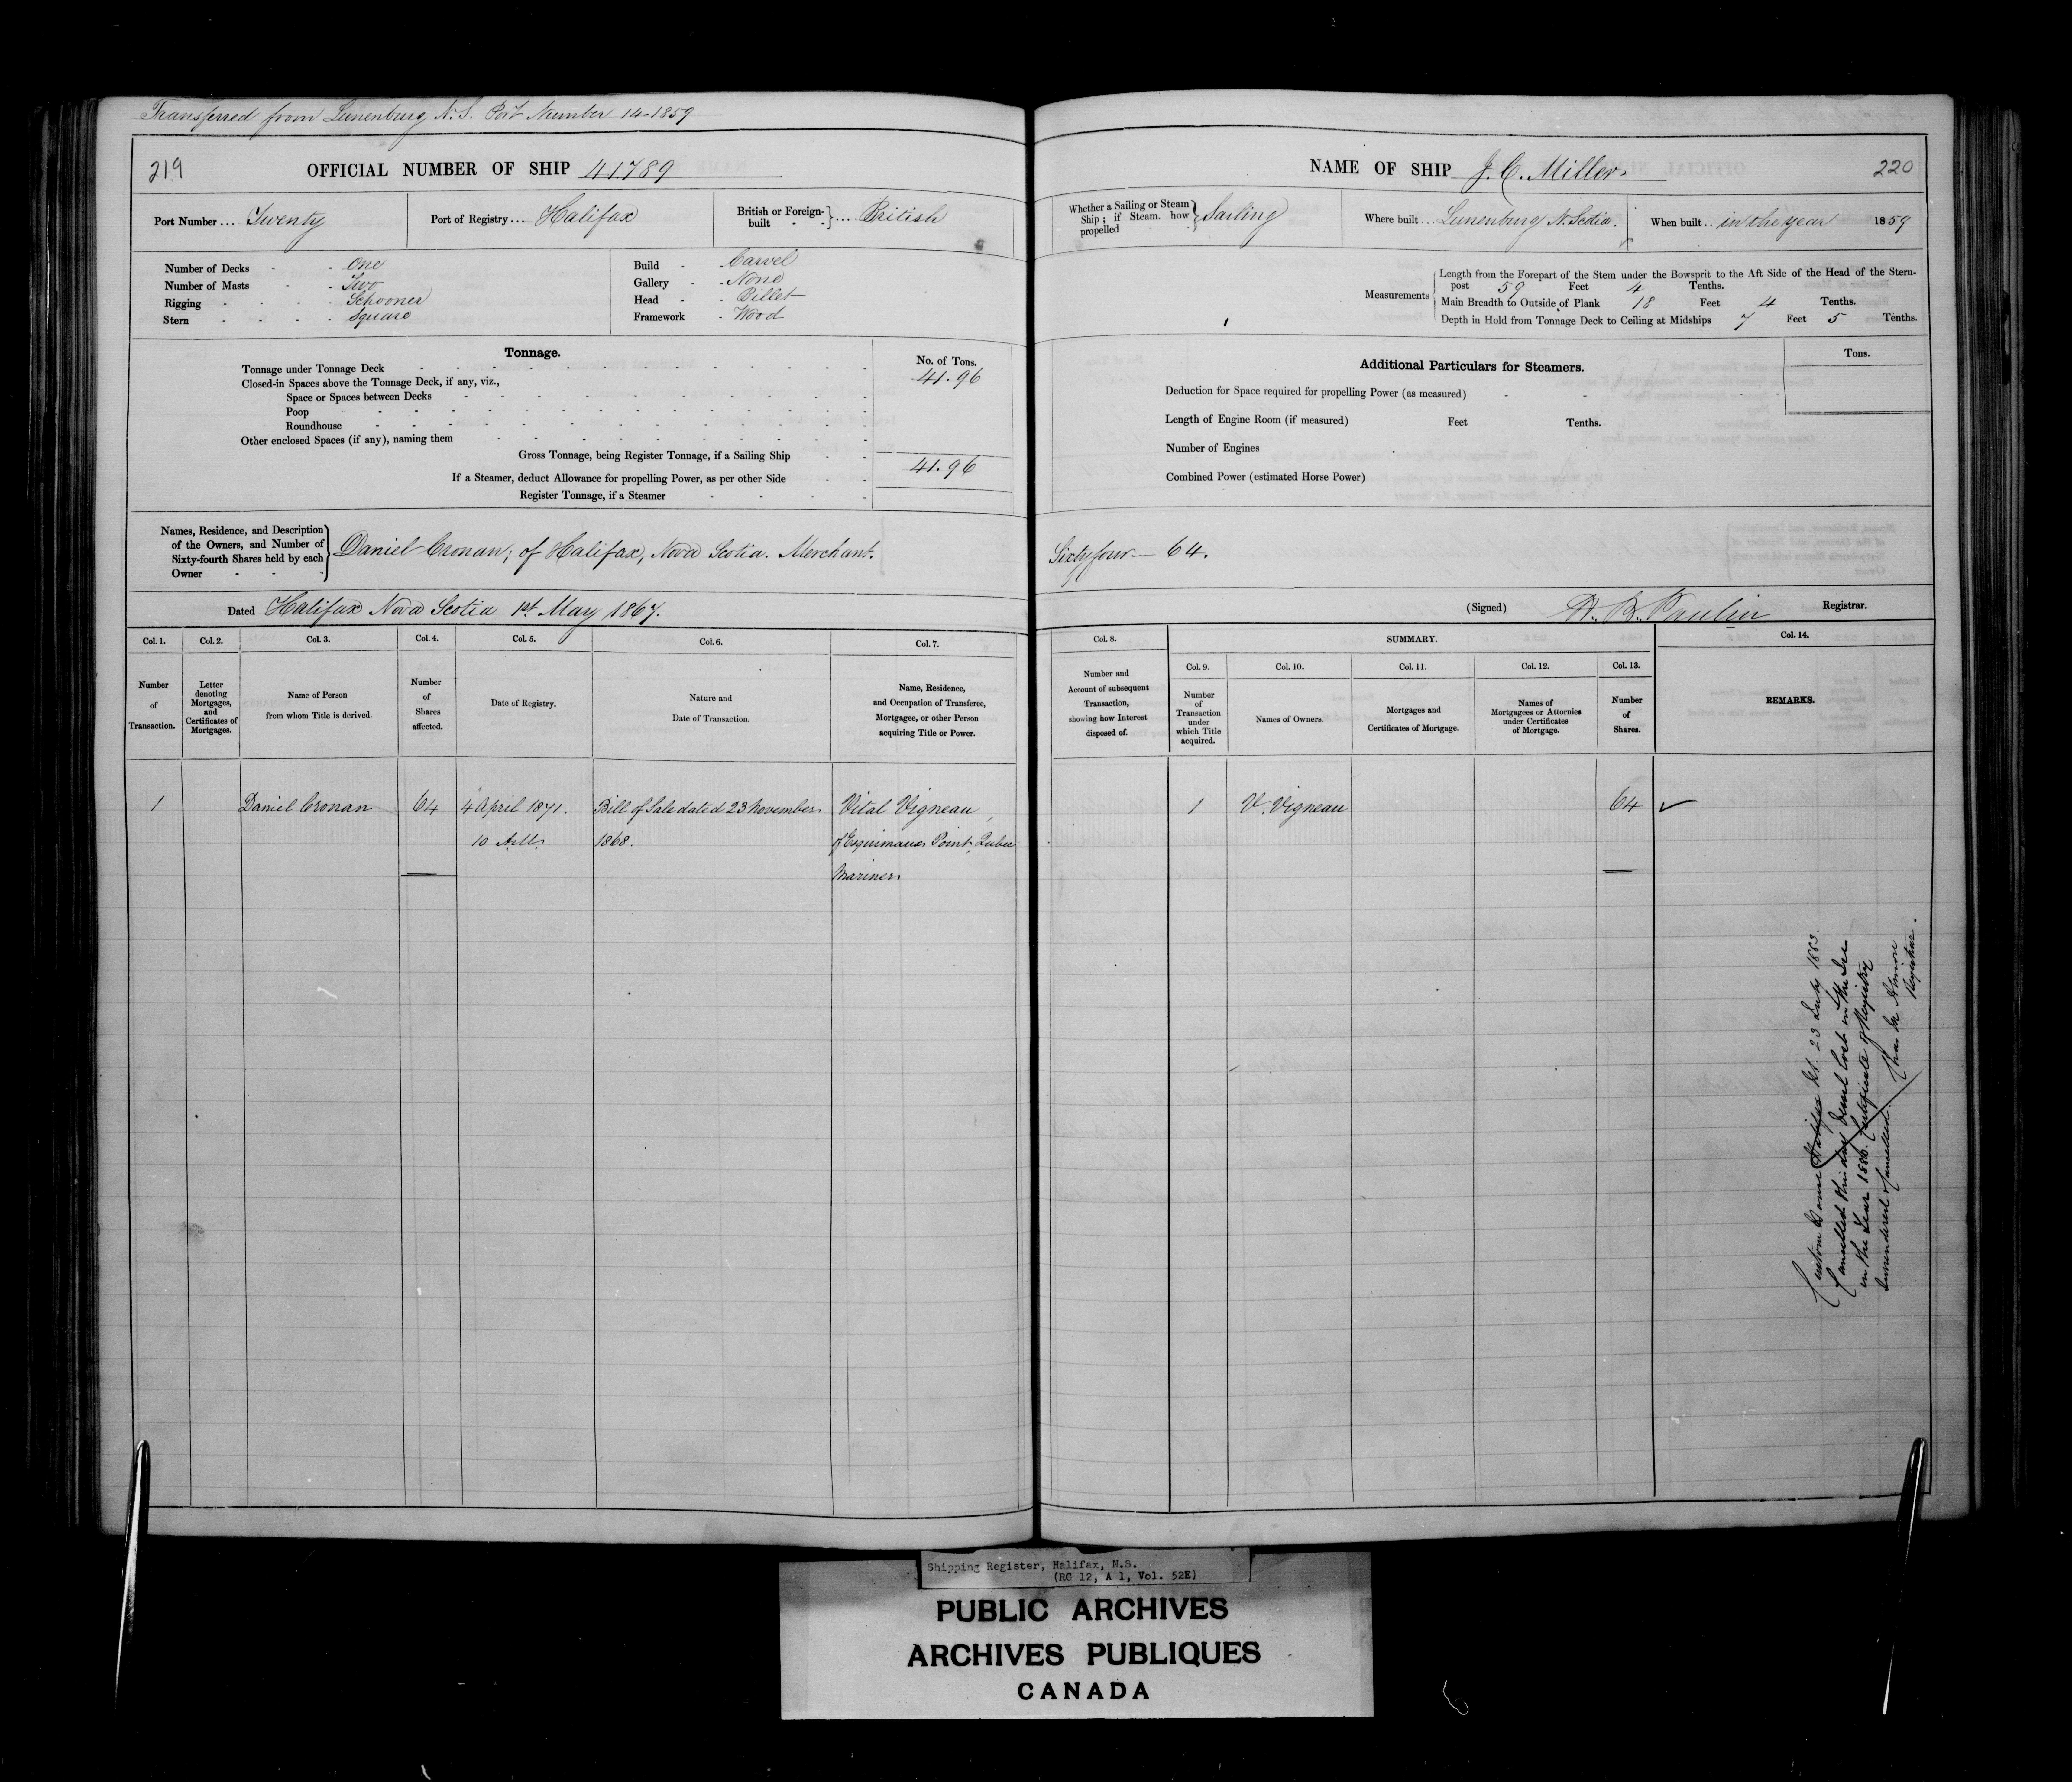 Transferred from Lunenburg N.S. Port Number 14-1859
219
OFFICIAL NUMBER OF SHIP 41.789
Port Number .... Twenty
Port of Registry .... Halifax
British or Foreign-built - - } .... British
Number of Decks - - One
Number of Masts - - Two
Rigging - - - - Schooner
Stern - - - - Square
Build - - Carvel
Gallery - - None
Head - - Billet
Framework - Wood
Tonnage.
No. of Tons.
Tonnage under Tonnage Deck 41.96
Closed-in Spaces above the Tonnage Deck, if any, viz.,
Space or Spaces between Decks
Poop
Roundhouse
Other enclosed Spaces (if any), naming them
Gross Tonnage, being Register Tonnage, if a Sailing Ship 41.96
If a Steamer, deduct Allowance for propelling Power, as per other Side
Register Tonnage, if a Steamer
Names, Residence, and Description
of the Owners, and Number of
Sixty-fourth Shares held by each
Owner
Daniel Cronan; of Halifax, Nova Scotia. Merchant.
Dated Halifax Nova Scotia 1st May 1867.
Col. 1. Col. 2. Col. 3. Col. 4. Col. 5. Col. 6. Col. 7.
Number of Transaction.
Letter denoting Mortgages, and Certificates of Mortgages.
Name of Person from whom Title is derived.
Number of Shares affected.
Date of Registry.
Nature and Date of Transaction.
Name, Residence, and Occupation of Transferee, Mortgagee, or other Person acquiring Title or Power.
1 Daniel Cronan 64 4 April 1871. Bill of Sale dated 23 November Vital Vigneau,
10 A.M. 1868. of Esquimaux Point, Quebec
Mariner
NAME OF SHIP J. C. Miller
220
Whether a Sailing or Steam Ship; if Steam. how propelled - - } Sailing
Where built ... Lunenburg N. Scotia.
When built .. in the year 1859
Measurements
Length from the Forepart of the Stem under the Bowsprit to the Aft Side of the Head of the Stern-
post 59 Feet 4 Tenths.
Main Breadth to Outside of Plank 18 Feet 4 Tenths.
Depth in Hold from Tonnage Deck to Ceiling at Midships 7 Feet 5 Tenths.
Additional Particulars for Steamers.
Tons.
Deduction for Space required for propelling Power (as measured)
Length of Engine Room (if measured) Feet Tenths.
Number of Engines
Combined Power (estimated Horse Power)
Sixty four — 64.
(Signed) Registrar.
Col. 8.
SUMMARY.
Col. 14.
Col. 9. Col. 10. Col. 11. Col. 12. Col. 13.
Number and Account of subsequent Transaction, showing how Interest disposed of.
Number of Transaction under which Title acquired.
Names of Owners.
Mortgages and Certificates of Mortgage.
Names of Mortgagees or Attornies under Certificates of Mortgage.
Number of Shares.
REMARKS.
1 V. Vigneau 64
Custom House Halifax N.S. 23 July 1883.
Cancelled this day Vessel Lost in the Ice
in the Year 1880. Certificate of Registry
Surrendered & Cancelled.
Registrar.
Shipping Register, Halifax, N.S.
(RG 12, A 1, Vol. 52E)
PUBLIC ARCHIVES
ARCHIVES PUBLIQUES
CANADA